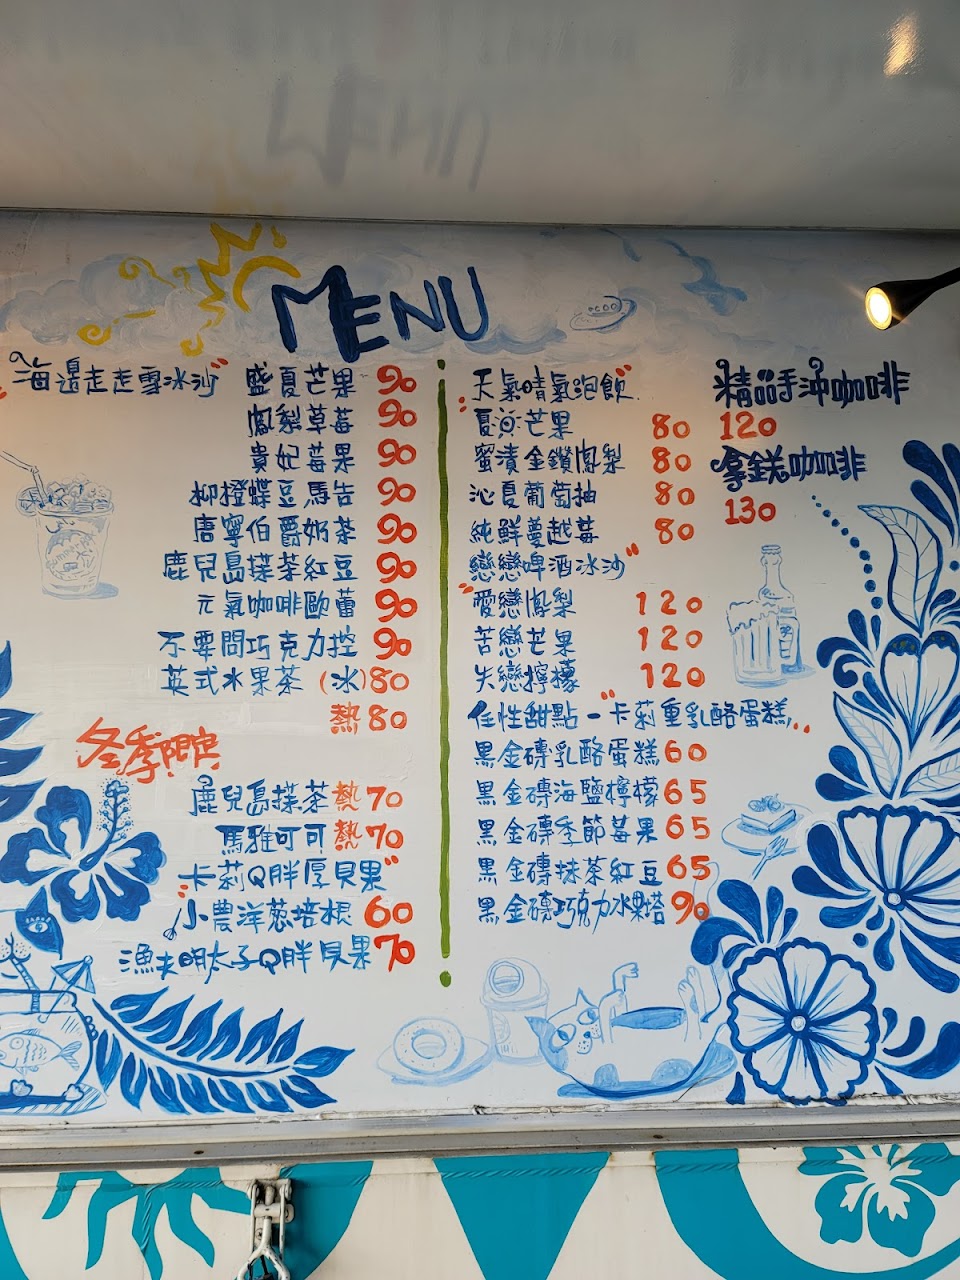 MENU
"海邊走走雪冰沙"
盛夏芒果 90
鳳梨草莓 90
貴妃莓果 90
柳橙蝶豆馬告 90
唐寧伯爵奶茶 90
鹿兒島抹茶紅豆 90
元氣咖啡歐蕾 90
不要問巧克力控 90
英式水果茶 (冰)80
熱80
冬季限定
鹿兒島抹茶熱70
馬雅可可熱70
"卡莉Q胖厚貝果"
小農洋蔥培根60
漁夫明太子Q胖貝果70
"天氣晴氣泡飲"
夏浜芒果 80
蜜漬金鑽鳳梨 80
沁夏葡萄柚 80
純鮮蔓越莓 80
"戀戀啤酒冰沙"
愛戀鳳梨 120
苦戀芒果 120
失戀檸檬 120
佐性甜點-"卡莉重乳酪蛋糕"
黑金磚乳酪蛋糕60
黑金磚海鹽檸檬65
黑金磚季節莓果65
黑金磚抹茶紅豆65
黑金磚巧克力冰磚塔90
精品手沖咖啡
120
拿鐵咖啡
130